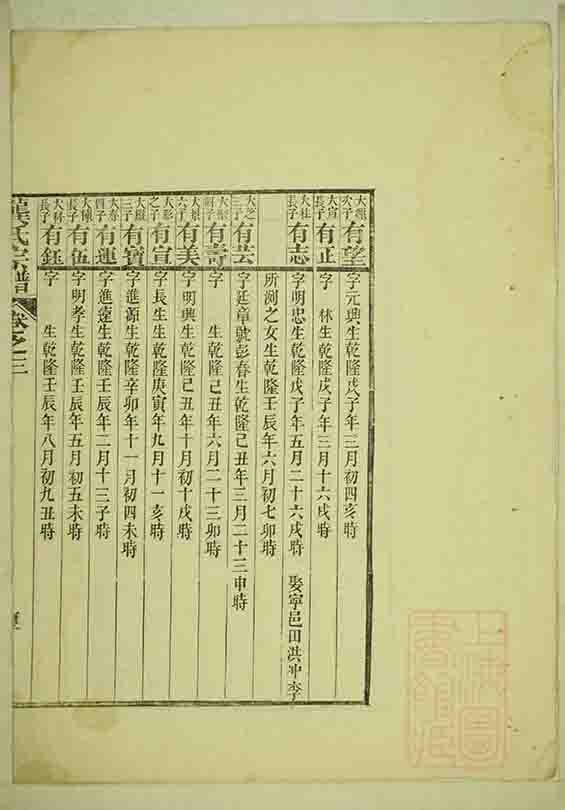 次子有望字元興生乾隆戊子年三月初四亥時
長子有正字林生乾隆戊子年三月十六戌時
大柱長子有志字明忠生乾隆戊子年五月二十六戌時 娶寧邑田洪冲李
所渕之女生乾隆壬辰年六月初七卯時
三子有芸字廷章號彭春生乾隆己丑年三月二十三申時
有壽字 生乾隆己丑年六月二十三卯時
六子有美字明興生乾隆己丑年十月初十戌時
之子有宣字長生生乾隆庚寅年九月十一亥時
三子有寶字進源生乾隆辛卯年十一月初四未時
有連字進遠生乾隆壬辰年二月十三子時
長子有伍字明孝生乾隆壬辰年五月初五未時
大林長子有鈺字 生乾隆壬辰年八月初九丑時
氏宗譜 卷之三
上海圖書館藏